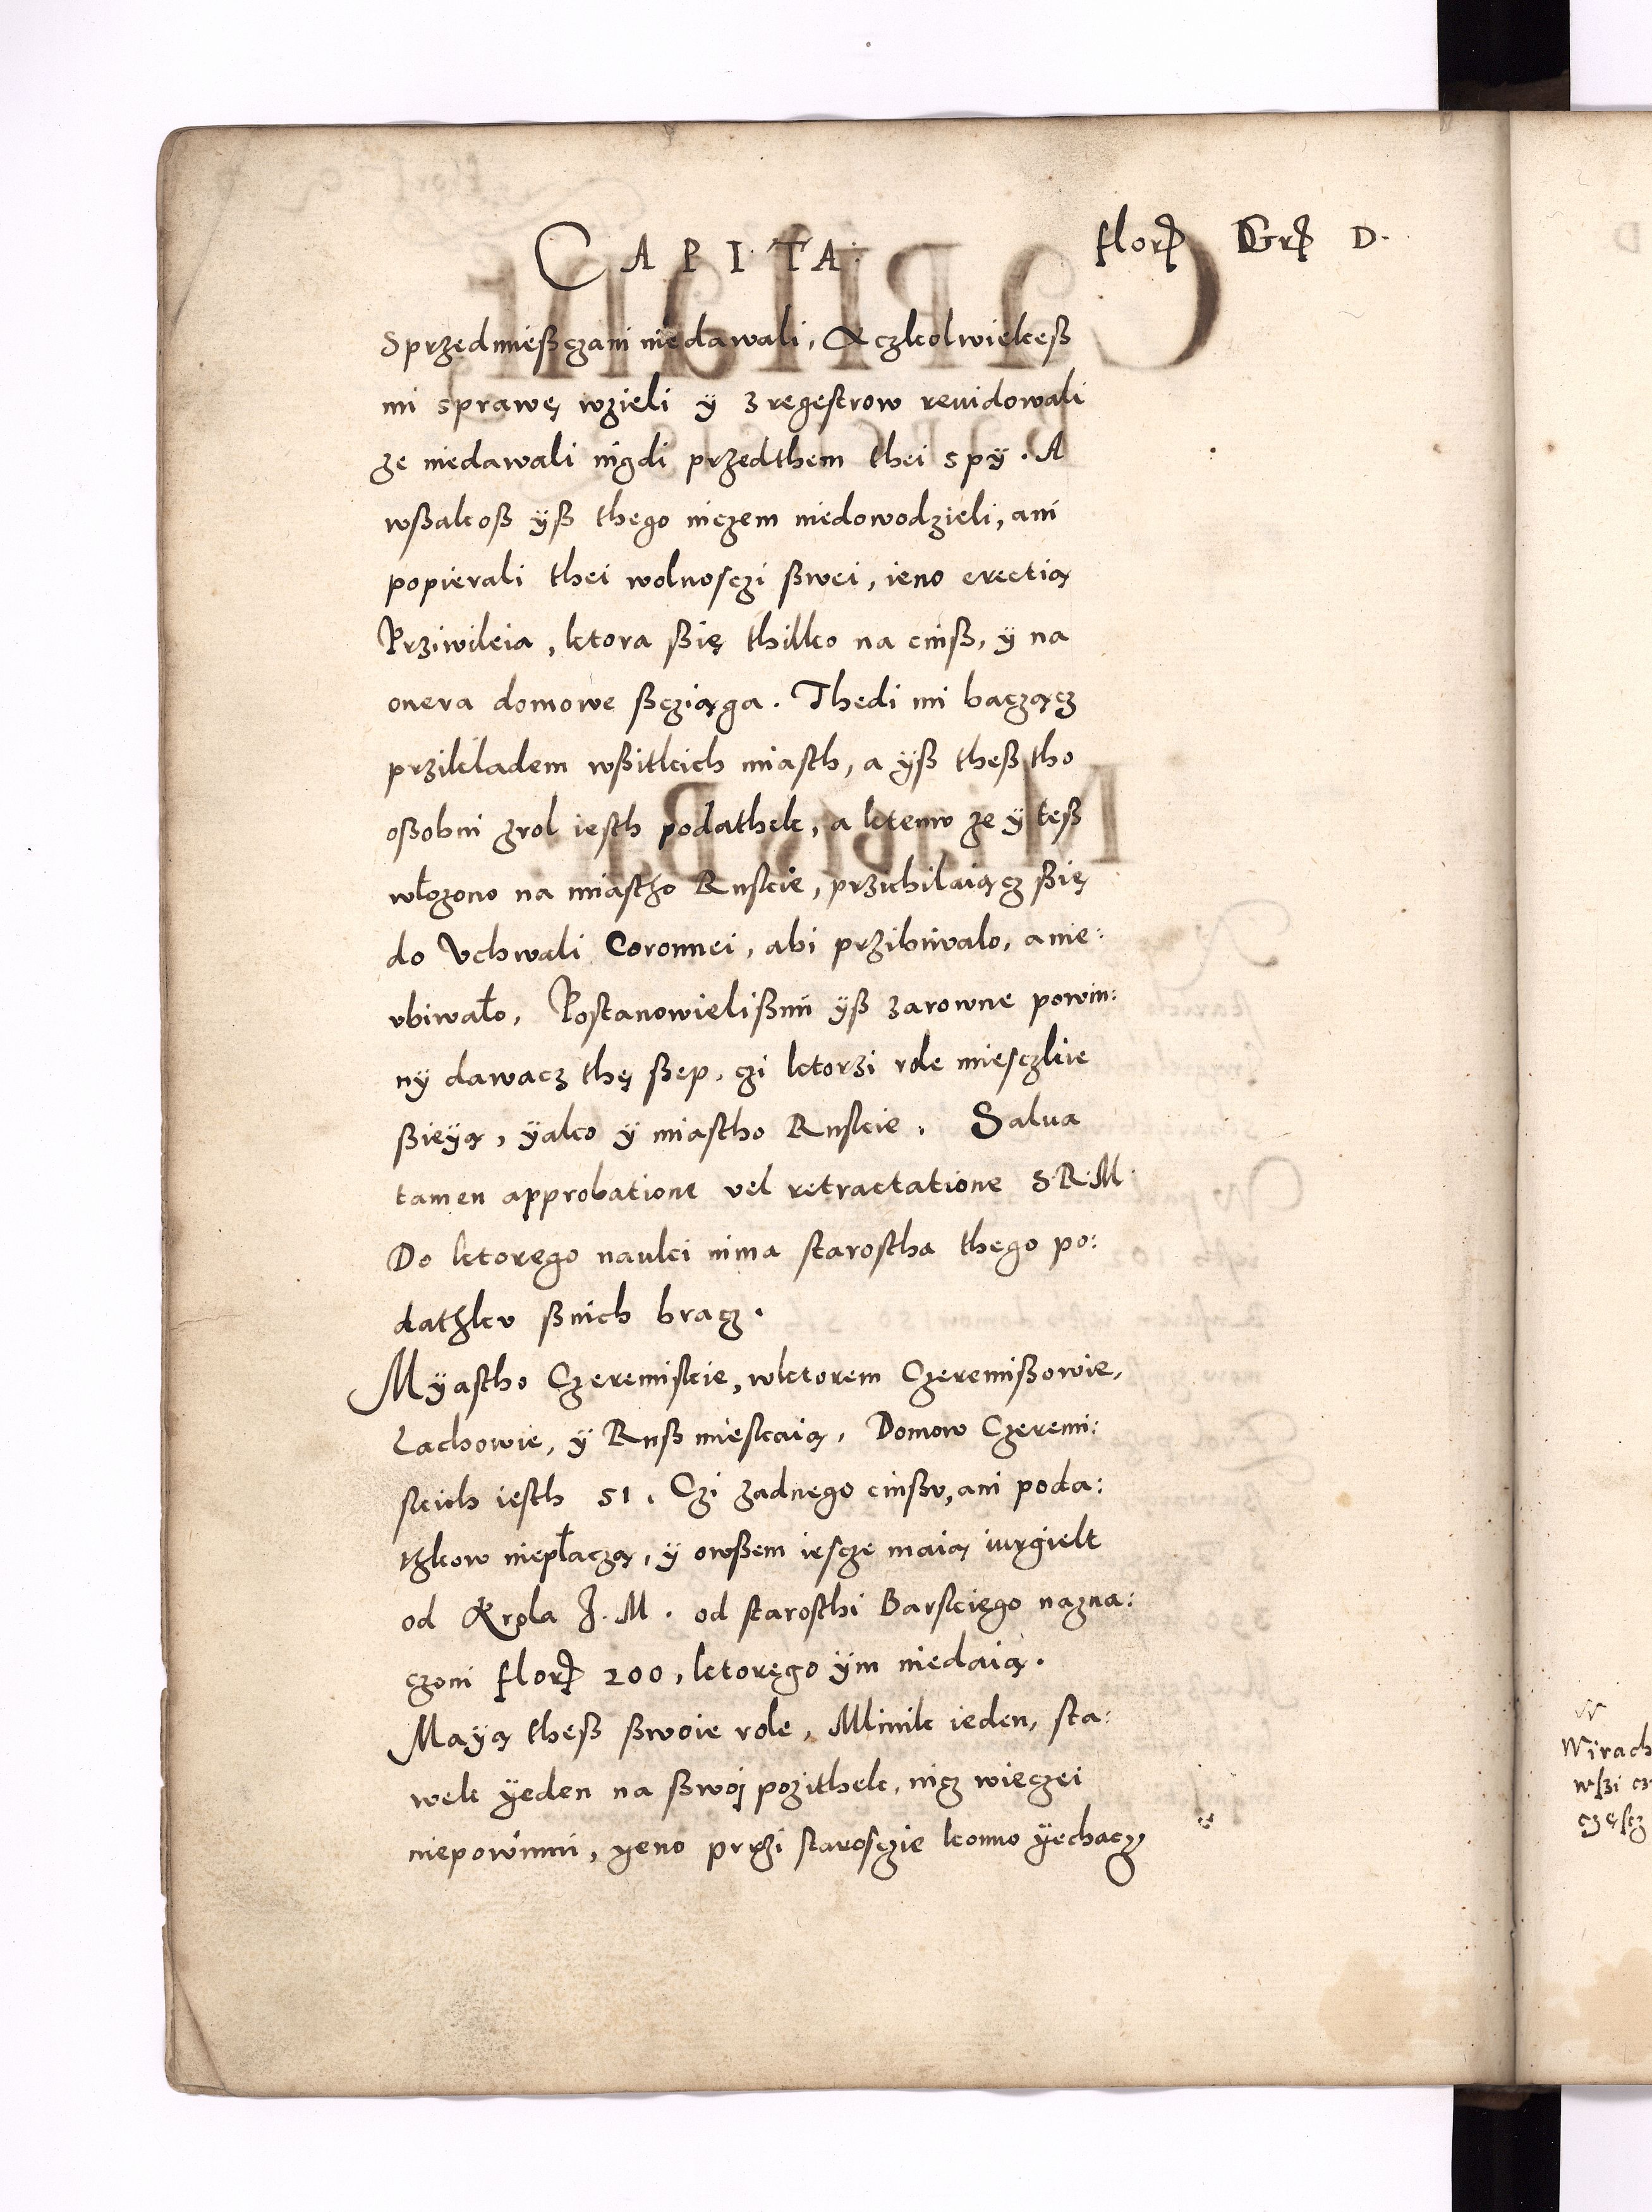 CAPITA. florꝭ Grꝭ D.
Sprzedmießczani niedawali, Aczkolwiekeß
mi sprawę wzieli ÿ z regestrow reuidowali
ze niedawali nigdi przedthem thei spÿ. A
wßakoß ÿß thego niczem niedowodzieli, ani
popierali thei wolnosczi ßwei, ieno erectią
Prziwileia, ktora ßię thilko na cinß, ÿ na
onera domowe ßcziąga. Thedi mi baczącz
przikładem wßitkich miasth, a ÿß theß tho
oßobni zrol iesth podathek, a ktemv ze ÿ teß
włozono na miastho Ruskie, przichilaiącz ßię
do Vchwali Coronnei, abi przibiwalo, a nie:
vbiwało, Postanowielißmi ÿß zarowne powin:
nÿ dawacz thę ßep, czi ktorzi role miesczkie
ßieÿą, ÿako ÿ miastho Ruskie. Salua
tamen approbatione vel retractatione S.R.M.
Do ktorego nauki nima starostha thego po:
dathkv ßnich bracz.
Mÿastho Czeremiskie, wktorem Czeremißowie,
Lachowie, ÿ Ruß mieskaią, Domow Czeremi:
skich iesth 51. Czi zadnego cinßv, ani poda:
tkow niepłaczą, ÿ owßem iescze maią iurgielt
od Krola J. M. od starosthi Barskiego nazna:
czoni florꝭ 200, ktorego ÿm niedaią.
Maÿą theß ßwoie role, Mlinik ieden, sta:
wek ÿeden na ßwoj pozithek, nicz wieczei
niepowinni, ÿeno przi starosczie konno ÿechacz
W
Wirach
wßi
częscz